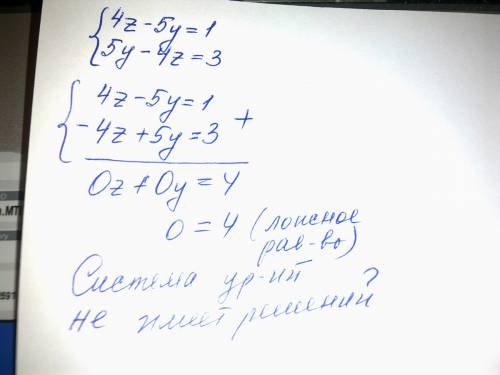 4z - 5y = 1
5y - 4z = 3
4z - 5y = 1
- 4z + 5y = 3 +
0z + 0y = 4
0 = 4 (ложное
рав-во)
Система ур-ий
не имеет решений ?